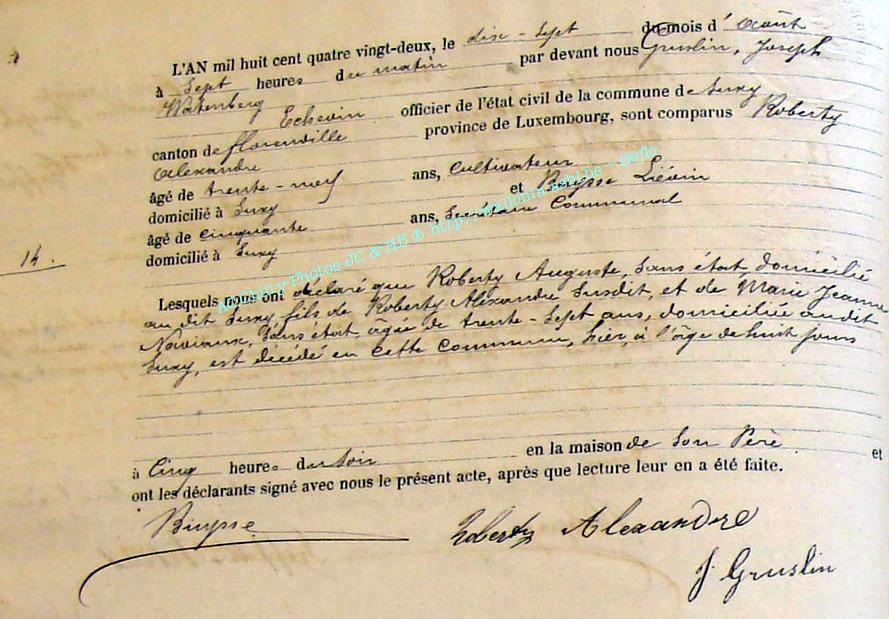 L'AN mil huit cent quatre vingt-deux, le dix-sept du mois d'août
à sept heures du matin par devant nous Gruslin, Joseph
Echevin officier de l'état civil de la commune de Suxy
canton de florenville province de Luxembourg, sont comparus Roberty
Alexandre
âgé de trente-neuf ans, Cultivateur
domicilié à Suxy et Buysse Liévin
âgé de cinquante ans, Secrétaire Communal
domicilié à Suxy
14.
Lesquels nous ont déclaré que Roberty Auguste, sans état, domicilié
au dit Suxy fils de Roberty Alexandre susdit, et de Marie Jeanne
sans état âgée de trente-sept ans, domiciliée au dit
Suxy, est décédé en cette commune, hier, à l'âge de huit jours
à Cinq heures du soir en la maison de son Père et
ont les déclarants signé avec nous le présent acte, après que lecture leur en a été faite.
Buysse
Roberty Alexandre
J. Gruslin
Photos JC & HB ® http://wallonia.asbl.be - Geflo